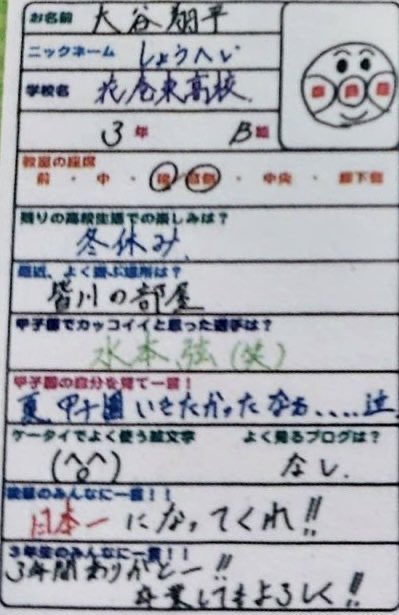 お名前 大谷翔平
ニックネーム しょうへい
学校名 花巻東高校
3年 B組
教室の座席
前・中・後 窓側・中央・廊下側
残りの高校生活での楽しみは？
冬休み
最近、よく遊ぶ場所は？
皆川の部屋
甲子園でカッコイイと思った選手は？
水本弦(笑)
甲子園の自分を見て一言！
夏甲子園いきたかったなぁ....泣
ケータイでよく使う絵文字 よく見るブログは？
(^o^) なし.
後輩のみんなに一言！！
日本一になってくれ!!
3年生のみんなに一言！！
3年間ありがとー!!
卒業してもよろしく!!